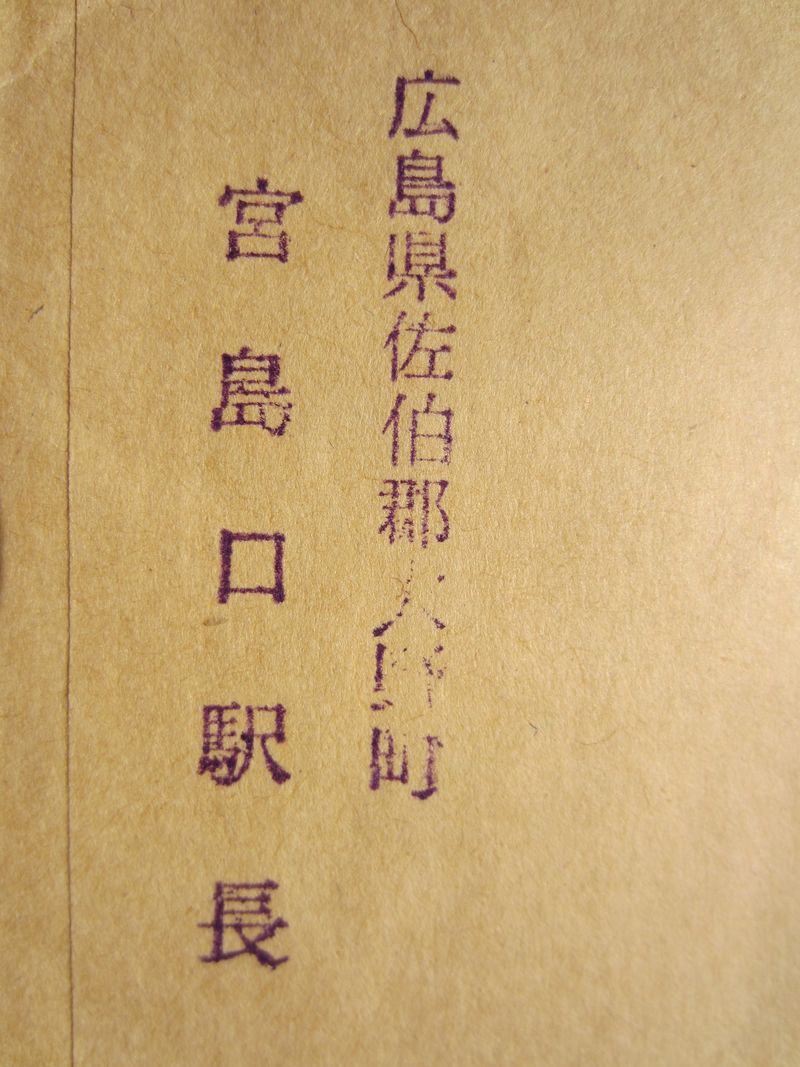 広島県佐伯郡大野町
宮島口駅長